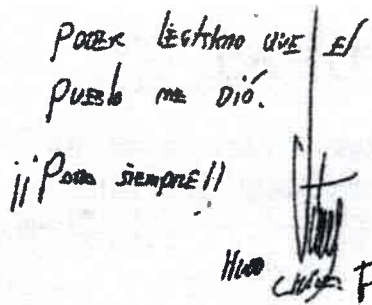 PODER LEGÍTIMO QUE El
PUEBLO ME DIÓ.
¡¡PARA SIEMPRE!!
Hugo